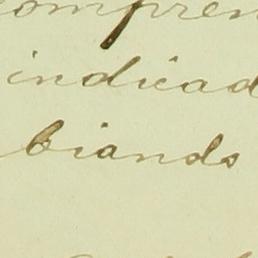 compren
indicad
biando